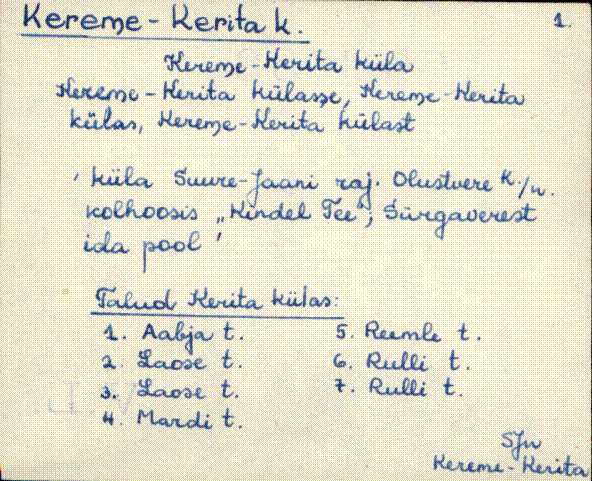 Kereme-Kerita k. 1.
Kereme-Kerita küla
Kereme-Kerita külasse, Kereme-Kerita
külas, Kereme-Kerita külast
' küla Suure-Jaani raj. Olustvere k./n.
kolhoosis „Kindel Tee", Sürgaverest
ida pool '
Talud Kerita külas:
1. Aabja t. 5. Reemle t.
2. Laose t. 6. Rulli t.
3. Laose t. 7. Rulli t.
4. Mardi t.
SJn
Kereme-Kerita